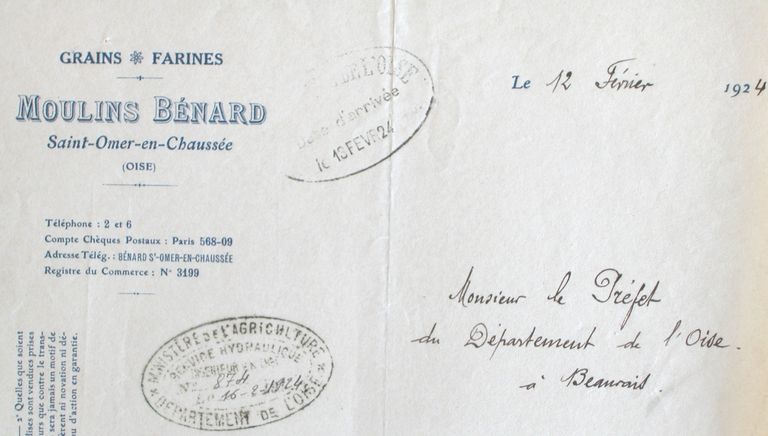 GRAINS ❋ FARINES
MOULINS BÉNARD
Saint-Omer-en-Chaussée
(OISE)
Téléphone : 2 et 6
Compte Chèques Postaux : Paris 568-09
Adresse Télég. : BÉNARD ST-OMER-EN-CHAUSSÉE
Registre du Commerce : No 3199
DE L'OISE
Date d'arrivée
le 13 FEVR 24
Le 12 Février 1924
Monsieur le Préfet
du Département de l'Oise.
à Beauvais.
MINISTÈRE DE L'AGRICULTURE
SERVICE HYDRAULIQUE
INGÉNIEUR EN
DÉPARTEMENT DE L'OISE
— 2° Quelles que soient
ises sont vendues prises
urs que contre le trans-
sera jamais un motif de
èrent ni novation ni dé-
ou d'action en garantie.